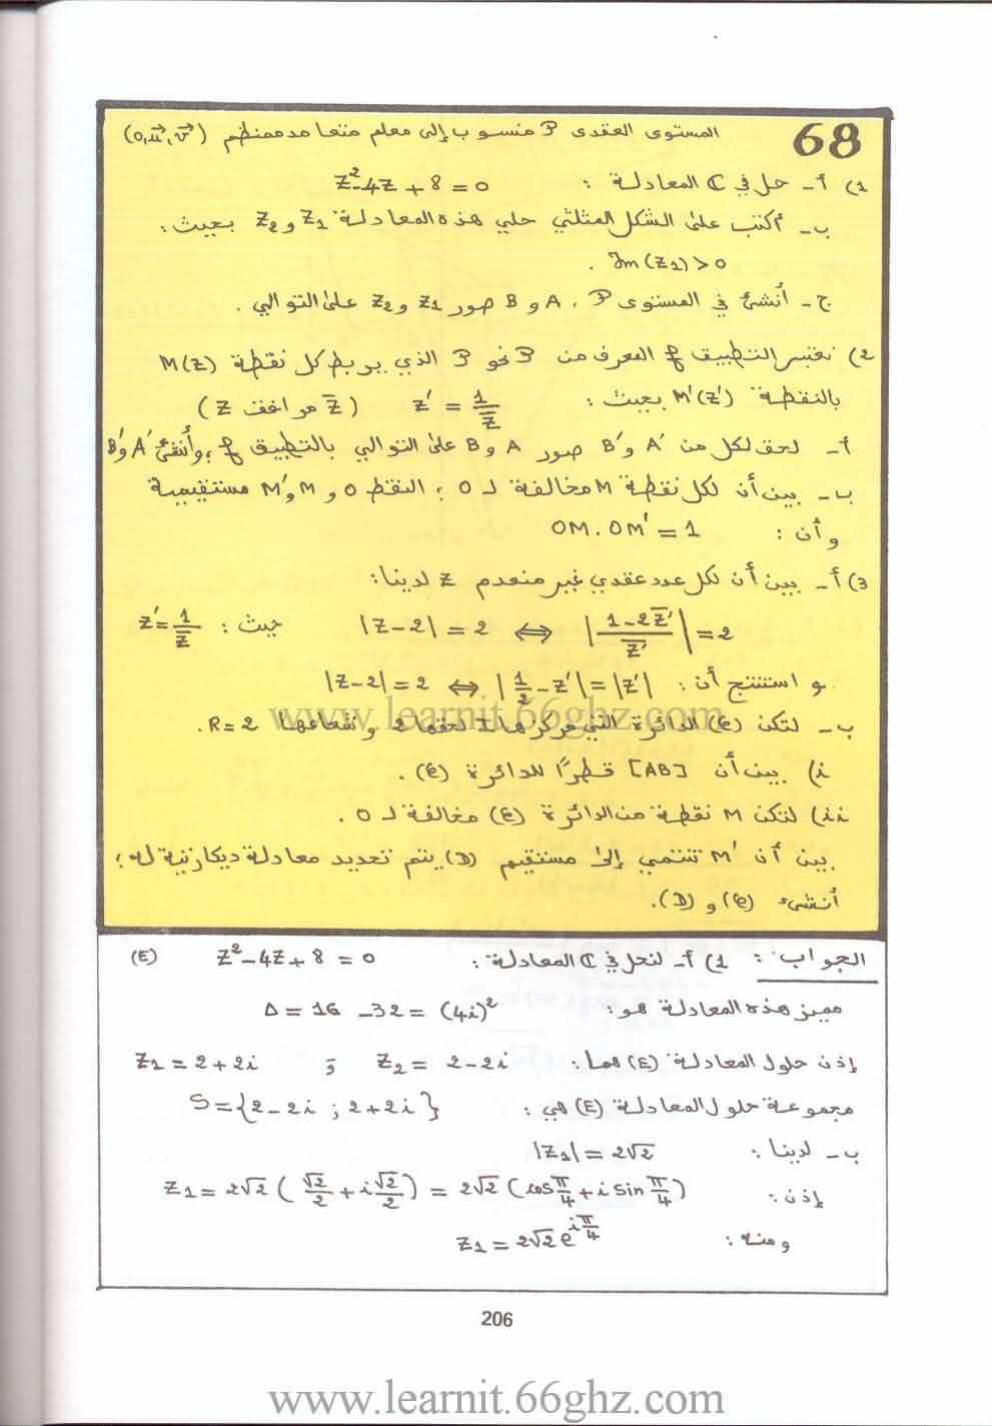 68
المستوى العقدي P منسوب إلى معلم متعامد ممنظم (o, u⃗, v⃗)
1) أ- حل في ℂ المعادلة : z² - 4z + 8 = 0
ب- أكتب على الشكل المثلثي حلي هذه المعادلة z₁ و z₂ بحيث :
Im(z₁) > 0 .
ج- أنشئ في المستوى P ، A و B صور z₁ و z₂ على التوالي .
2) نعتبر التطبيق f المعرف من P نحو P الذي يربط كل نقطة M(z)
بالنقطة M'(z') بحيث : z' = 1/z̄ (z̄ مرافق z)
أ- لحق لكل من A' و B' صور A و B على التوالي بالتطبيق f ، وأنشئ A' و B'
ب- بين أن لكل نقطة M مخالفة لـ O ؛ النقط O و M و M' مستقيمية
وأن : OM . OM' = 1
3) أ- بين أن لكل عدد عقدي غير منعدم z لدينا :
|z - 2| = 2 ⇔ |(1 - 2z̄')/z̄'| = 2 حيث : z' = 1/z̄
و استنتج أن : |z - 2| = 2 ⇔ |1/2 - z'| = |z'|
www.learnit.66ghz.com
ب- لتكن (C) الدائرة التي مركزها I لحقها 2 وشعاعها R = 2 .
i) بين أن [AB] قطرًا للدائرة (C) .
ii) لتكن M نقطة من الدائرة (C) مخالفة لـ O .
بين أن M' تنتمي إلى مستقيم (D) يتم تحديد معادلة ديكارتية له ؛
أنشئ (C) و (D).
الجواب : 1) أ- لنحل في ℂ المعادلة : z² - 4z + 8 = 0 (E)
مميز هذه المعادلة هو : Δ = 16 - 32 = (4i)²
إذن حلول المعادلة (E) هما : z₂ = 2 - 2i و z₁ = 2 + 2i
مجموعة حلول المعادلة (E) هي : S = {2 - 2i ; 2 + 2i}
ب- لدينا : |z₁| = 2√2
إذن : z₁ = 2√2 (√2/2 + i√2/2) = 2√2 (cos π/4 + i sin π/4)
ومنه : z₁ = 2√2 e^(iπ/4)
206
www.learnit.66ghz.com